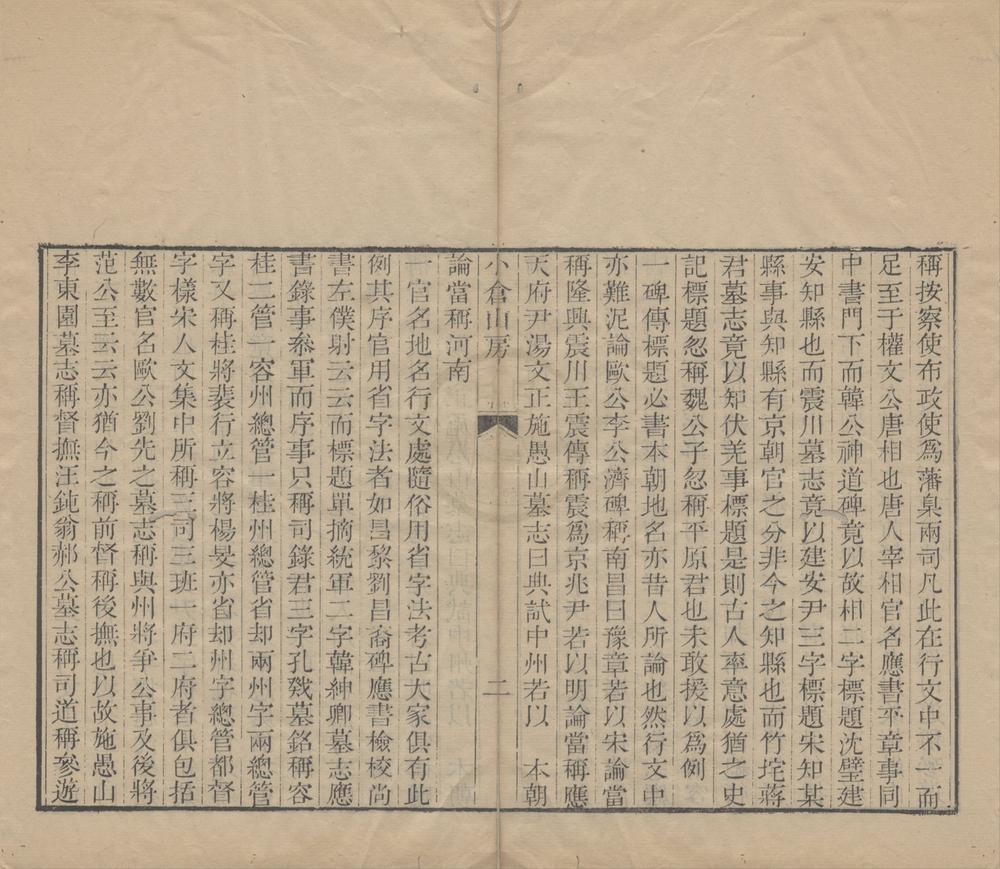 稱按察使布政使爲藩臬兩司凡此在行文中不一而
足至于權文公唐相也唐人宰相官名應書平章事同
中書門下而韓公神道碑竟以故相二字標題沈璧建
安知縣也而震川墓志竟以建安尹三字標題宋知某
縣事與知縣有京朝官之分非今之知縣也而竹垞蔣
君墓志竟以知伏羌事標題是則古人率意處猶之史
記標題忽稱魏公子忽稱平原君也未敢援以爲例
一碑傳標題必書本朝地名亦昔人所論也然行文中
亦難泥論歐公李公濟碑稱南昌曰豫章若以宋論當
稱隆興震川王震傳稱震爲京兆尹若以明論當稱應
天府尹湯文正施愚山墓志曰典試中州若以　本朝
小倉山房　二
論當稱河南
一官名地名行文處隨俗用省字法考古大家俱有此
例其序官用省字法者如昌黎劉昌裔碑應書檢校尚
書左僕射云云而標題單摘統軍二字韓紳卿墓志應
書錄事叅軍而序事只稱司錄君三字孔戣墓銘稱容
桂二管一容州總管一桂州總管省却兩州字兩總管
字又稱桂將裴行立容將楊旻亦省却州字總管都督
字樣宋人文集中所稱三司三班一府二府者俱包括
無數官名歐公劉先之墓志稱與州將爭公事及後將
范公至云云亦猶今之稱前督稱後撫也以故施愚山
李東園墓志稱督撫汪鈍翁郝公墓志稱司道稱參遊